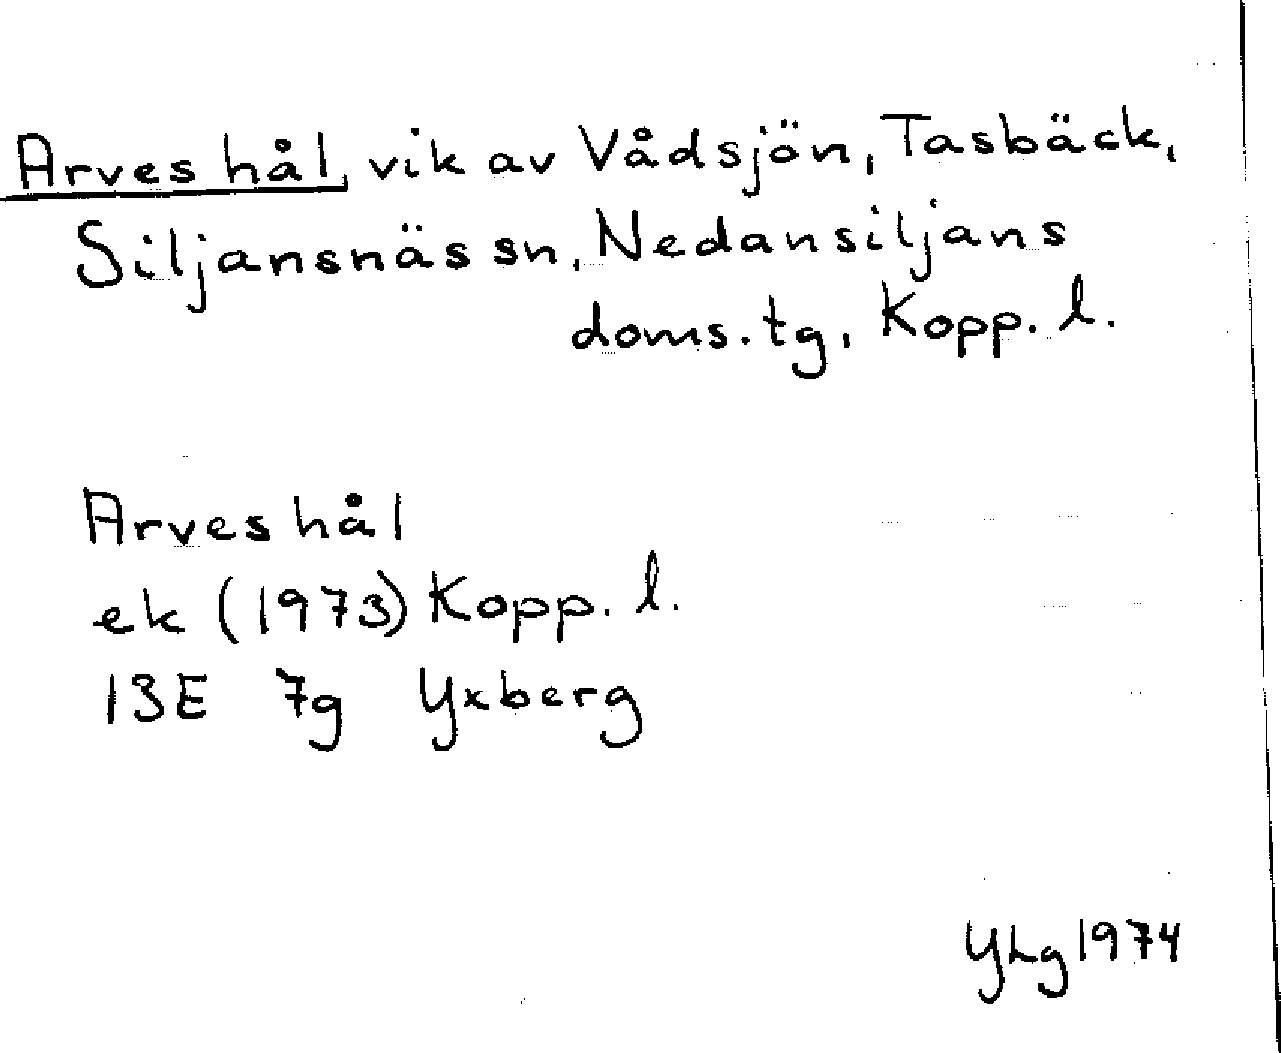 Arves hål, vik av Vådsjön, Tasbäck,
Siljansnäs sn, Nedansiljans
doms.tg, Kopp. l.
Arves hål
ek (1973) Kopp. l.
13E 7g Yxberg
YLg 1974